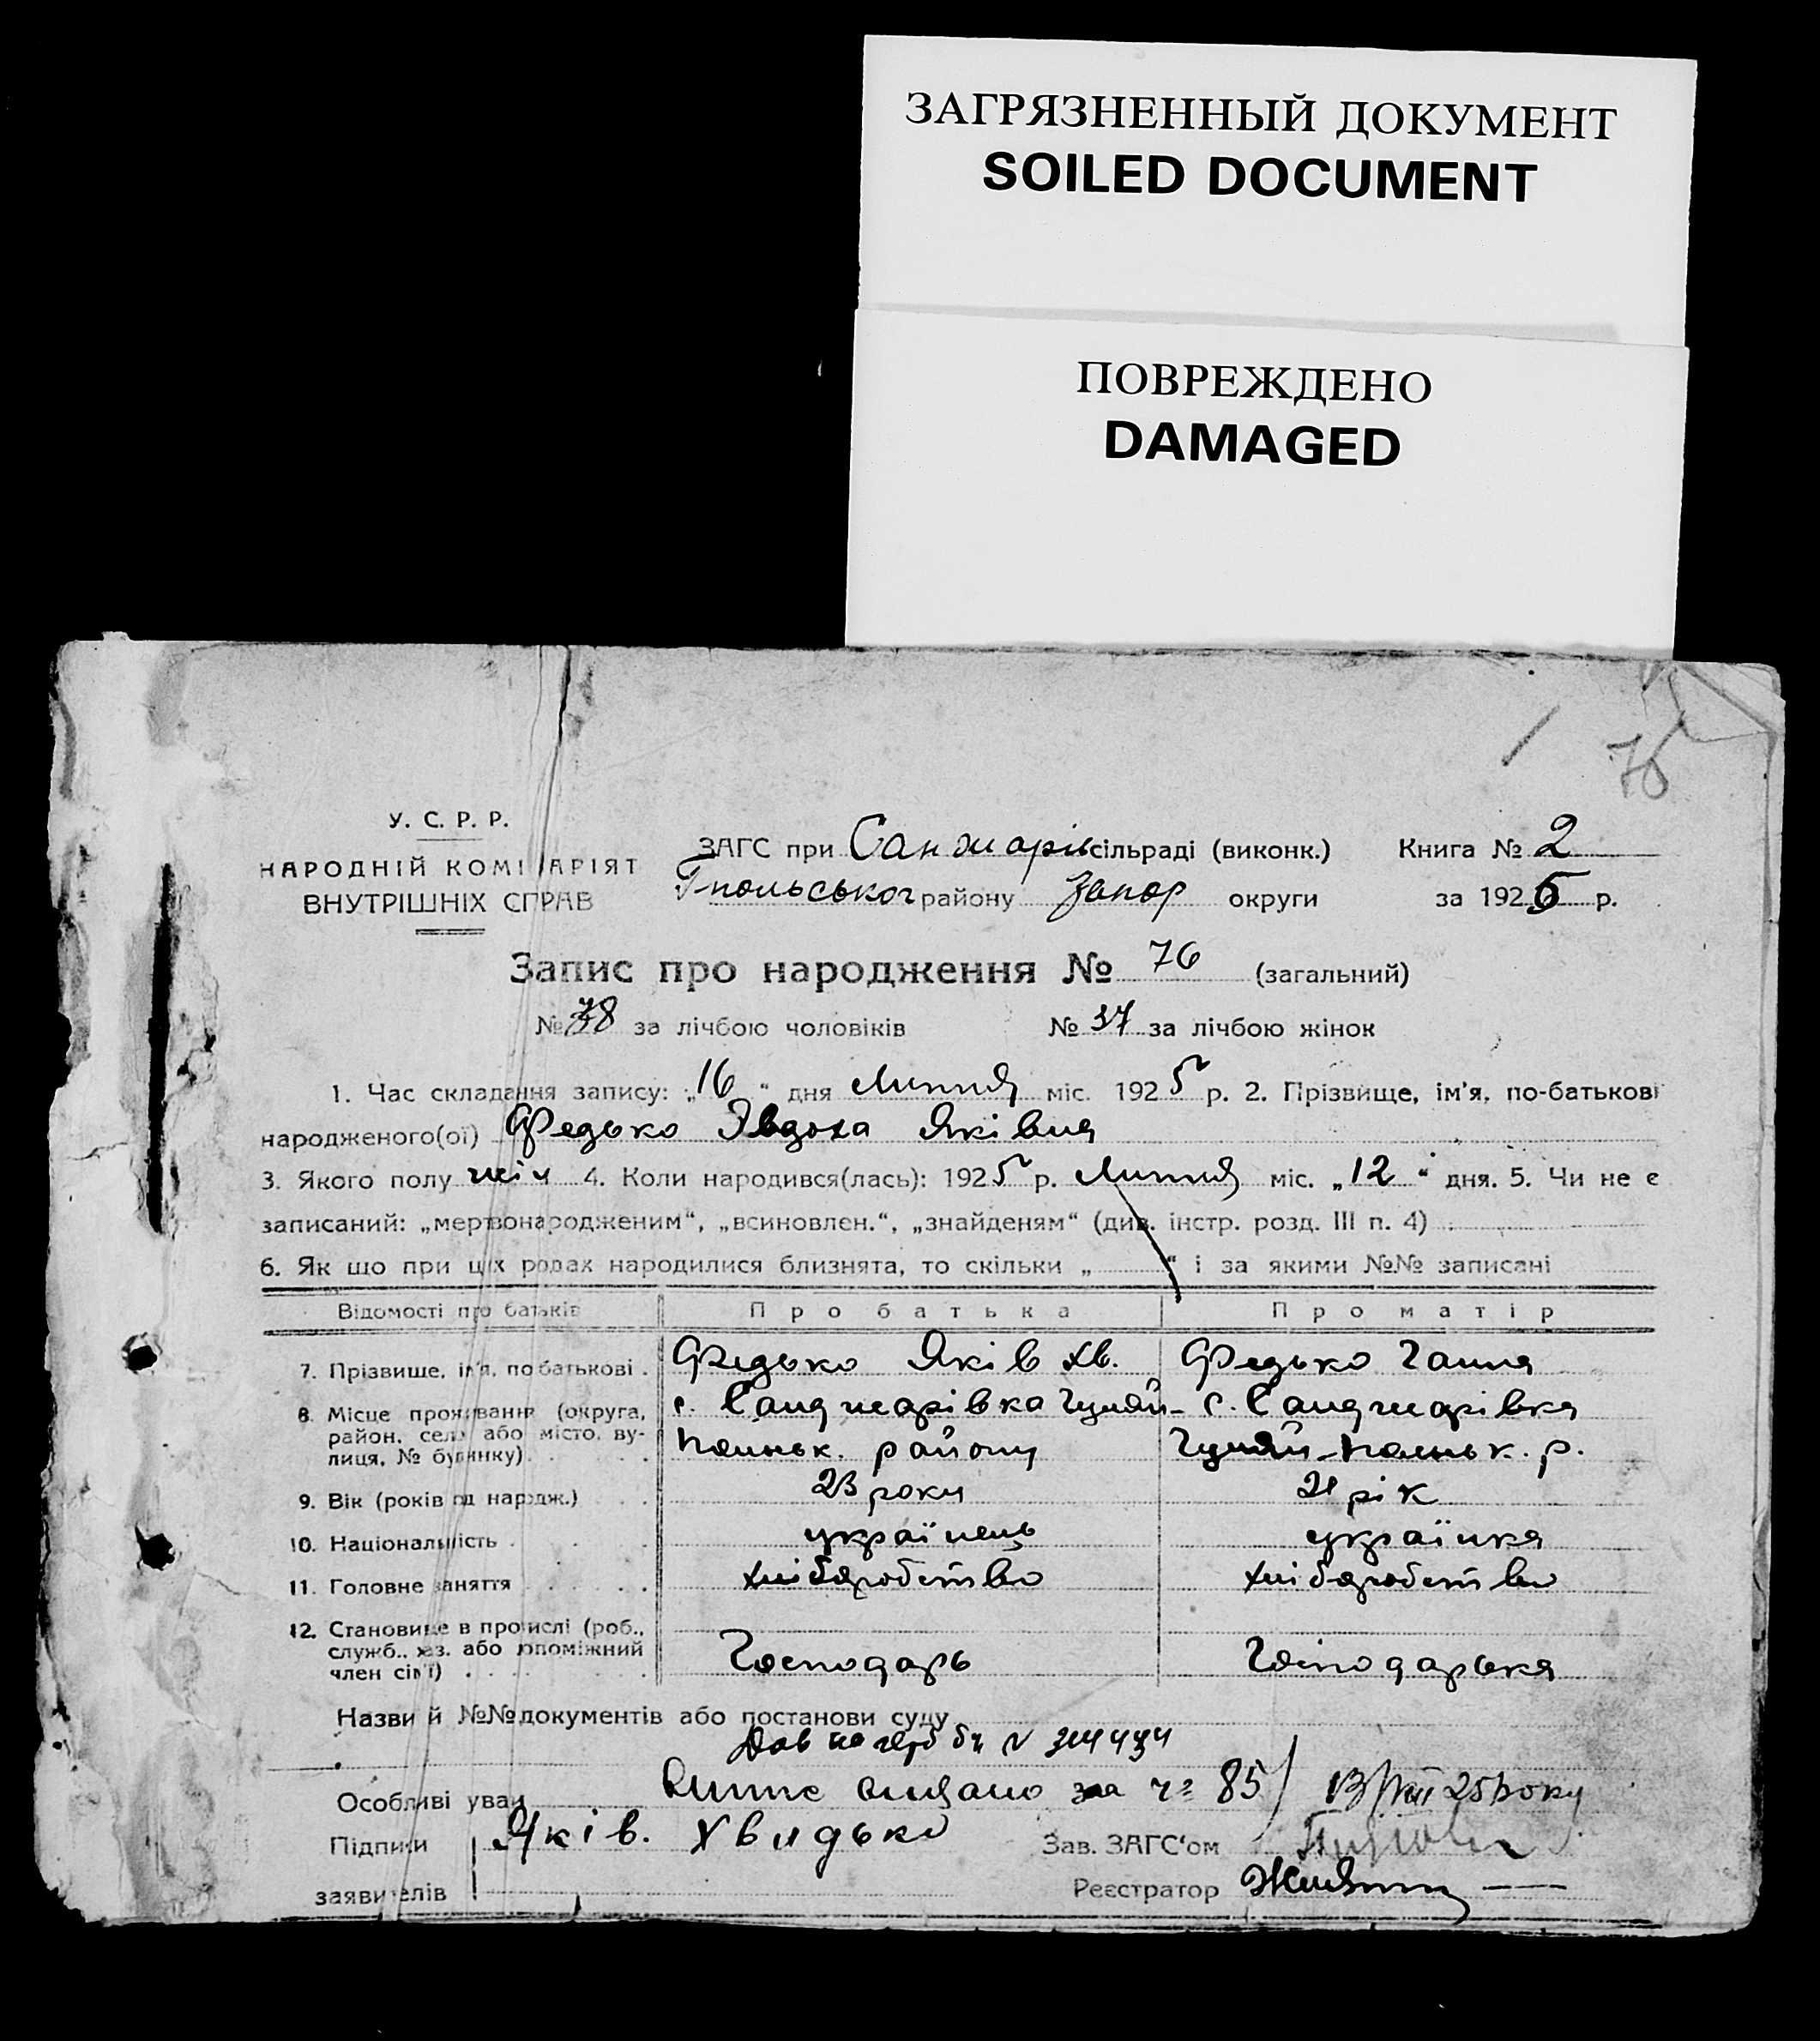 ЗАГРЯЗНЕННЫЙ ДОКУМЕНТ
SOILED DOCUMENT
ПОВРЕЖДЕНО
DAMAGED
76
У. С. Р. Р.
НАРОДНІЙ КОМІ АРІЯТ
ВНУТРІШНІХ СПРАВ
ЗАГС при Санжарів сільраді (виконк.) Книга № 2
Гпольськог району Запор округи за 1925 р.
Запис про народження № 76 (загальний)
№ 38 за лічбою чоловіків № 37 за лічбою жінок
1. Час складання запису: „16“ дня Липня міс. 1925 р. 2. Прізвище, ім'я, по-батькові
народженого(ої) Федько Явдоха Яківна
3. Якого полу жін 4. Коли народився(лась): 1925 р. Липня міс. „12“ дня. 5. Чи не є
записаний: „мертвонародженим“, „всиновлен.“, „знайденям“ (див. інстр. розд. III п. 4)
6. Як що при цих родах народилися близнята, то скільки „ “ і за якими №№ записані
Відомості про батьків Про батька Про матір
7. Прізвище, ім'я, по батькові . Федько Яків Хв. Федько Ганна
8. Місце проживання (округа, район, село або місто, вулиця, № будинку) с. Санджарівка Гуляй- с. Санджарівка
Польськ. району Гуляй-Польськ. р.
9. Вік (років від нардж.) 23 роки 21 рік
10. Національність українець українка
11. Головне заняття хліборобство хліборобство
12. Становище в промислі (роб., служб., хаз. або допоміжний член сім'ї) Господарь Госпо дарька
Назви й №№ документів або постанови суду
Особливі уваги за 85 25 року
Підписи Яків. Хвидько Зав. ЗАГС'ом
заявителів Реєстратор